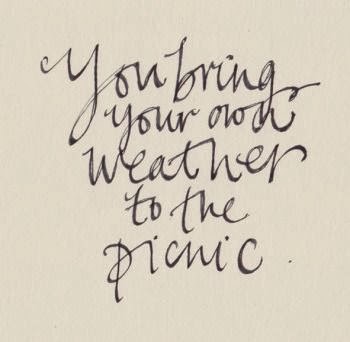 You bring
your own
weather
to the
picnic.